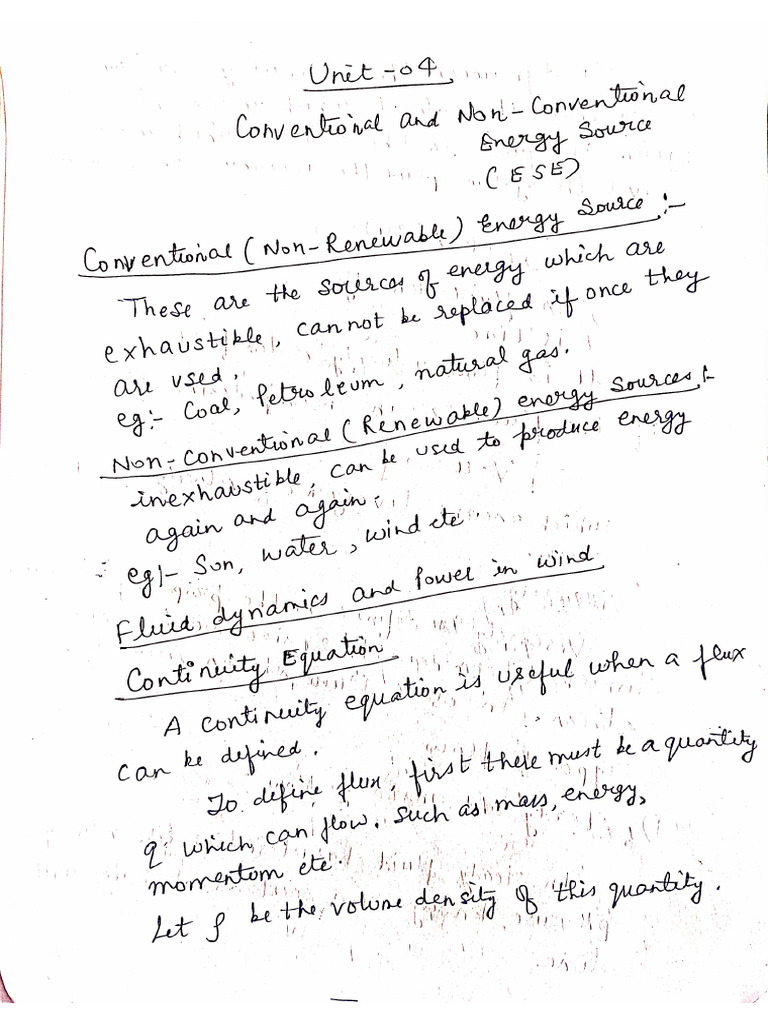 Unit - 04
Conventional and Non-Conventional
Energy Source
(ESE)
Conventional (Non-Renewable) Energy Source :-
These are the sources of energy which are
exhaustible, cannot be replaced if once they
are used.
eg:- Coal, Petroleum, natural gas.
Non-Conventional (Renewable) energy Sources :-
inexhaustible, can be used to produce energy
again and again.
eg:- Sun, water, wind etc
Fluid dynamics and Power in wind
Continuity Equation
A continuity equation is useful when a flux
can be defined.
To define flux, first there must be a quantity
q which can flow. Such as mass, energy,
momentom etc.
Let ρ be the volume density of this quantity.